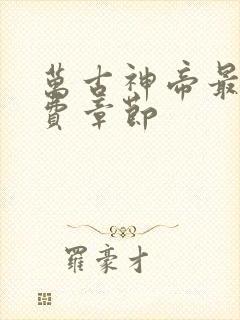 萬古神帝最
費章節
羅豪才